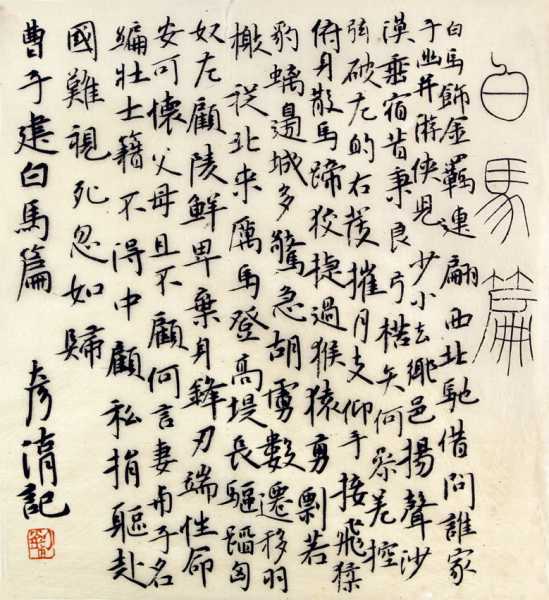 白馬篇
白馬飾金羈連翩西北馳借問誰家
子幽并游俠兒少小去鄉邑揚聲沙
漠垂宿昔秉良弓楛矢何參差控
弦破左的右摧月支仰手接飛猱
俯身散馬蹄狡捷過猴猿勇剽若
豹螭邊城多驚急胡虜數遷移羽
檄從北來厲馬登高堤長驅蹈匈
奴左顧陵鮮卑棄身鋒刃端性命
安可懷父母且不顧何言妻与子名
編壯士籍不得中顧私捐軀赴
國難視死忽如歸
曹子建白馬篇
彥記